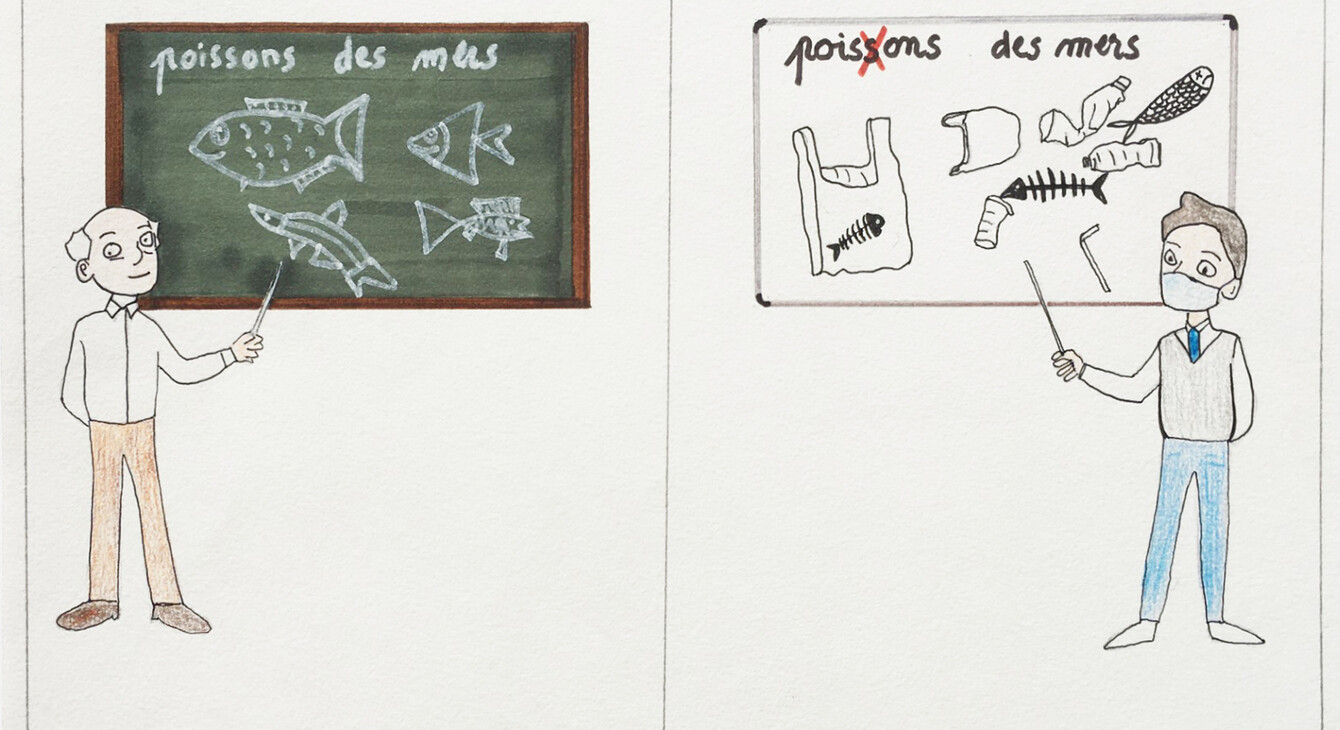 poissons des mers
poissons des mers